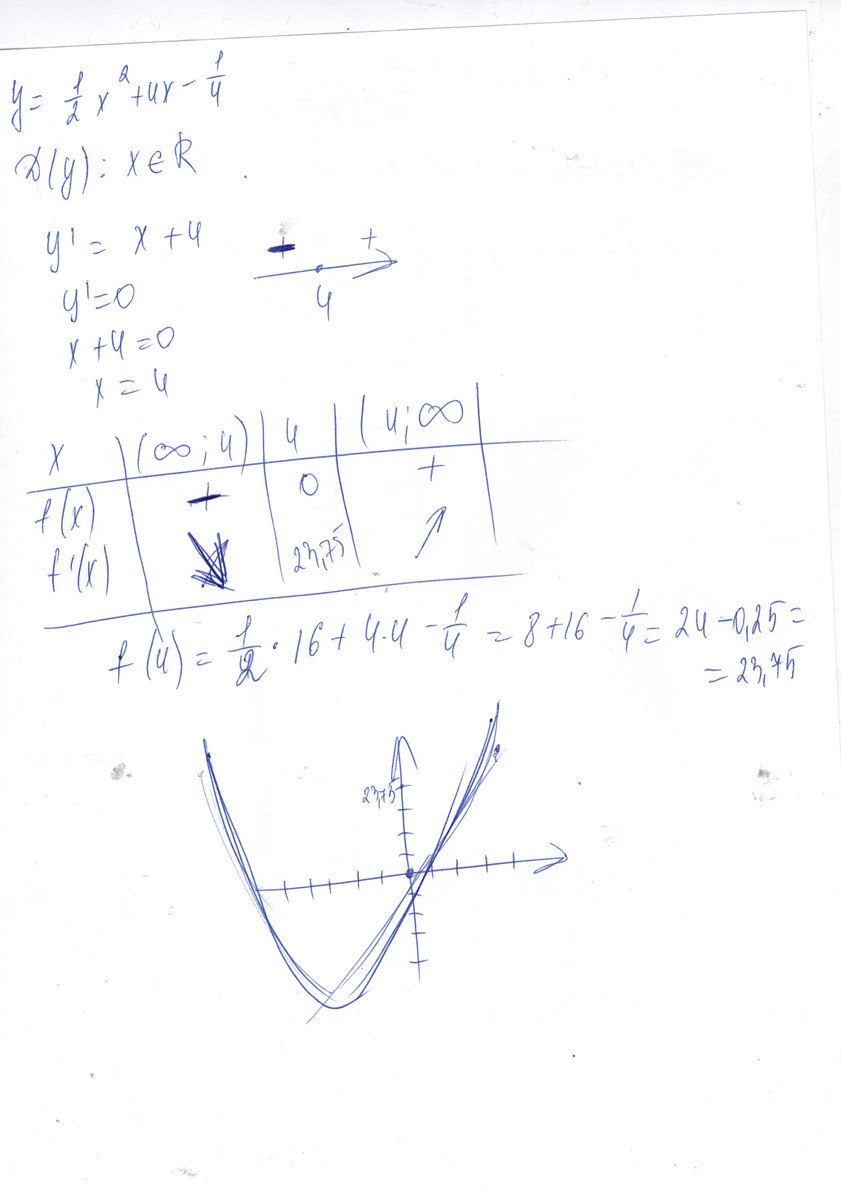 y = 1/2 x² + 4x - 1/4
D(y): x ∈ R
y' = x + 4
- +
4
y' = 0
x + 4 = 0
x = 4
x (∞; 4) 4 (4; ∞
f(x) - 0 +
f'(x) ↘ 23,75 ↗
f(4) = 1/2 · 16 + 4·4 - 1/4 = 8 + 16 - 1/4 = 24 - 0,25 =
= 23,75
23,75